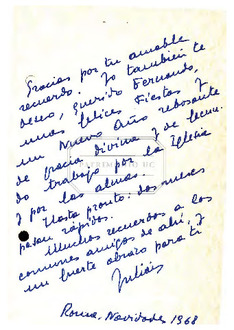 Gracias por tu amable
recuerdo. Yo también te
deseo, querido Fernando,
unas felices Fiestas y
un Nuevo Año rebosante
de gracia divina y de fecun-
do trabajo por la Iglesia
y por las almas.
Hasta pronto: dos meses
pasan rápidos.
Muchos recuerdos a los
comunes amigos de ahí, y
un fuerte abrazo para ti
Julián
Roma, Navidades 1968